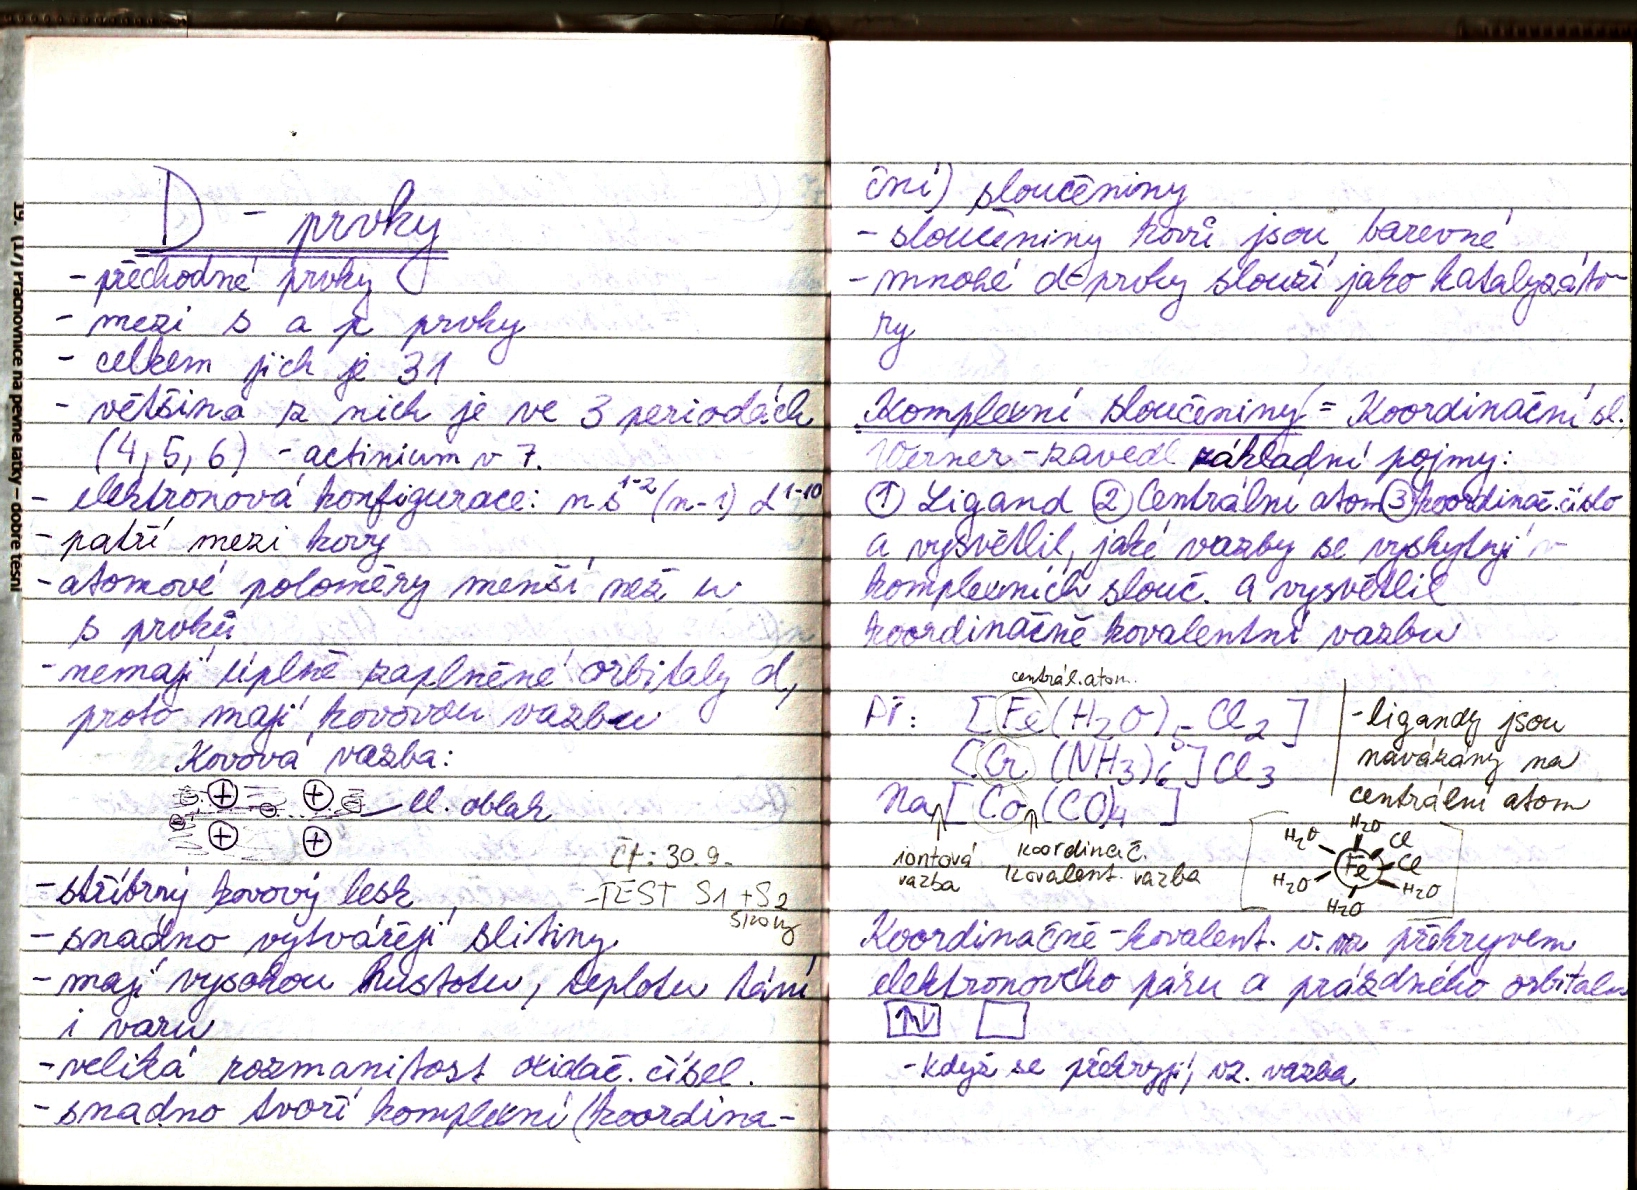 D - prvky
- přechodné prvky
- mezi s a p prvky
- celkem jich je 31
- většina z nich je ve 3 periodách
(4, 5, 6) - actinium v 7.
- elektronová konfigurace: n s¹⁻² (n-1) d¹⁻¹⁰
- patří mezi kovy
- atomové poloměry menší než u
s prvků
- nemají úplně zaplněné orbitaly d,
proto mají kovovou vazbu
Kovová vazba:
el. oblak
Čt: 30.9.
- TEST S1 + S2
- stříbrný kovový lesk
- snadno vytvářejí slitiny
- mají vysokou hustotu, teplotu tání
i varu
- veliká rozmanitost oxidač. čísel.
- snadno tvoří komplexní (koordina-
ční) sloučeniny
- sloučeniny kovů jsou barevné
- mnohé d-prvky slouží jako katalyzáto-
ry
Komplexní sloučeniny = Koordinační sl.
Werner - zavedl základní pojmy:
① Ligand ② Centrální atom ③ koordinač. číslo
a vysvětlil, jaké vazby se vyskytují v
komplexních slouč. a vysvětlil
koordinačně kovalentní vazbu
centrál. atom.
Př: [Fe(H₂O)₅Cl₂]
[Cr(NH₃)₆]Cl₃
Na[Co(CO)₄]
iontová vazba
koordinač. kovalent. vazba
- ligandy jsou
navázány na
centrální atom
H₂O H₂O Cl
Fe Cl
H₂O H₂O
H₂O
Koordinačně-kovalent. v. překryvem
elektronového páru a prázdného orbitalu
↑↓
- když se překryjí, vz. vazba